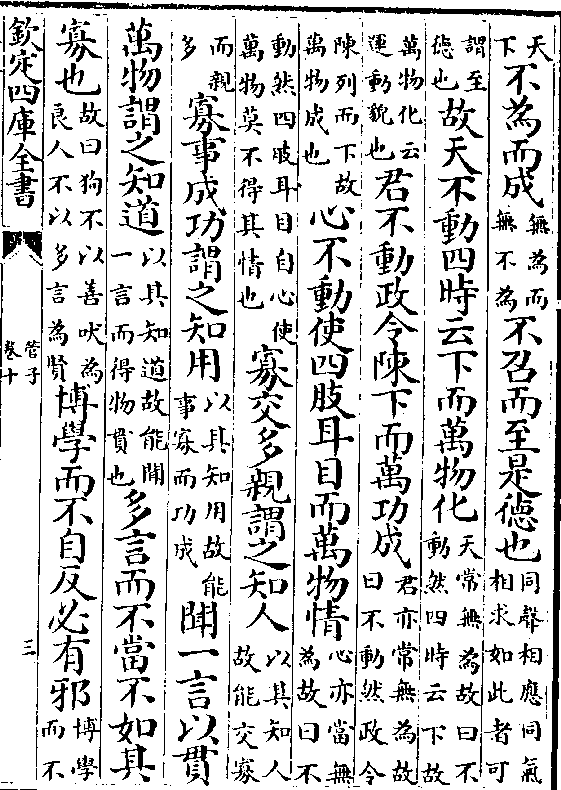 天下不為而成無為而無不為不召而至是德也同聲相應同氣相求如此者可
謂至德也故天不動四時云下而萬物化天常無為故曰不動然四時云下故
萬物化云運動貌也君不動政令陳下而萬功成君亦常無為故曰不動然政令
陳列而下故萬物成也心不動使四肢耳目而萬物情心亦當無為故曰不
動然四肢耳目自心使萬物莫不得其情也寡交多親謂之知人以其知人故能交寡
而親多寡事成功謂之知用以其知用故能事寡而功成聞一言以貫
萬物謂之知道以其知道故能聞一言而得物貫也多言而不當不如其
寡也故曰狗不以善吠為良人不以多言為賢博學而不自反必有邪博學而不
欽定四庫全書
管子
卷十
三